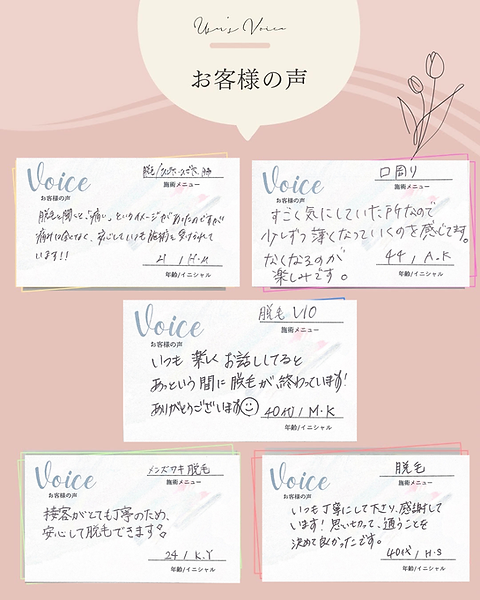 User's Voice
お客様の声
Voice
お客様の声
施術メニュー
脱毛と聞くと、「痛い」というイメージがあったのですが
痛みは全くなく、安心していつも施術を受けられて
います!!
21 / H.M
年齢/イニシャル
Voice
お客様の声
口周り
施術メニュー
すごく気にしていた所なので
少しずつ薄くなっていくのを感じてます。
なくなるのが
楽しみです。
44 / A.K
年齢/イニシャル
Voice
お客様の声
脱毛 VIO
施術メニュー
いつも楽しくお話ししてると
あっという間に脱毛が終わっています!
ありがとうございます
40代 / M.K
年齢/イニシャル
Voice
お客様の声
メンズワキ脱毛
施術メニュー
接客がとても丁寧のため、
安心して脱毛できます。
24 / K.Y
年齢/イニシャル
Voice
お客様の声
脱毛
施術メニュー
いつも丁寧にして下さり、感謝して
います! 思い切って、通うことを
決めて良かったです。
40代 / H.S
年齢/イニシャル